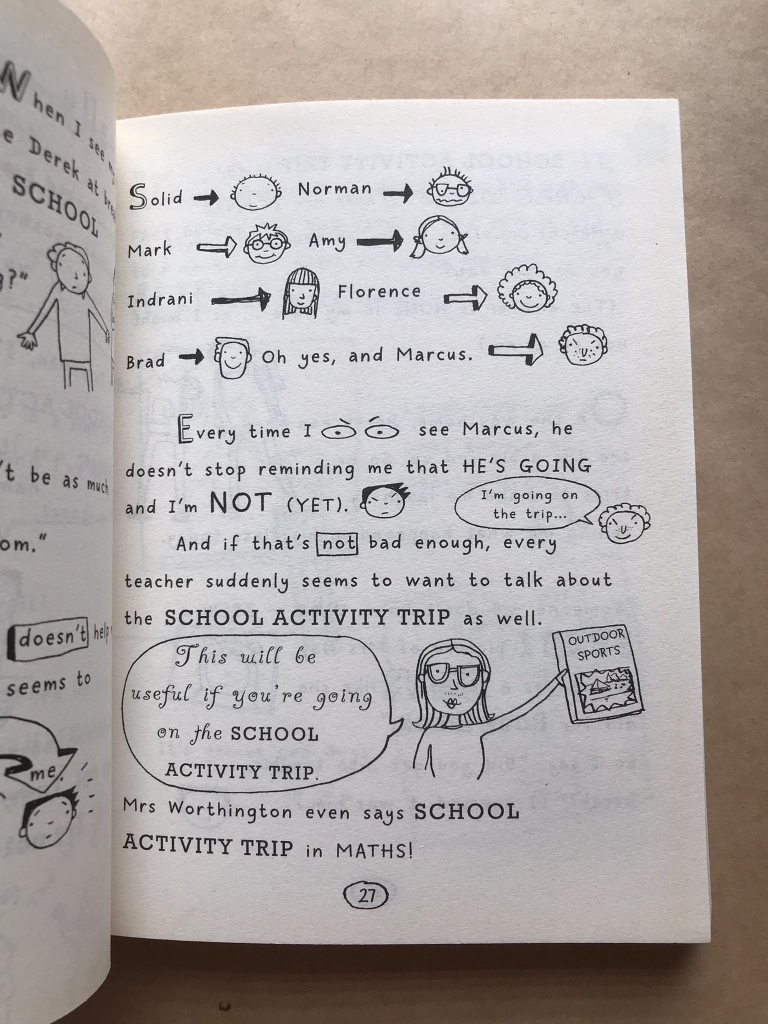 When I see
Derek at
SCHOOL
?"
't be as much
om."
doesn't help
seems to
me.
Solid Norman
Mark Amy
Indrani Florence
Brad Oh yes, and Marcus.
Every time I see Marcus, he
doesn't stop reminding me that HE'S GOING
and I'm NOT (YET).
I'm going on
the trip...
And if that's not bad enough, every
teacher suddenly seems to want to talk about
the SCHOOL ACTIVITY TRIP as well.
OUTDOOR
SPORTS
This will be
useful if you're going
on the SCHOOL
ACTIVITY TRIP.
Mrs Worthington even says SCHOOL
ACTIVITY TRIP in MATHS!
27